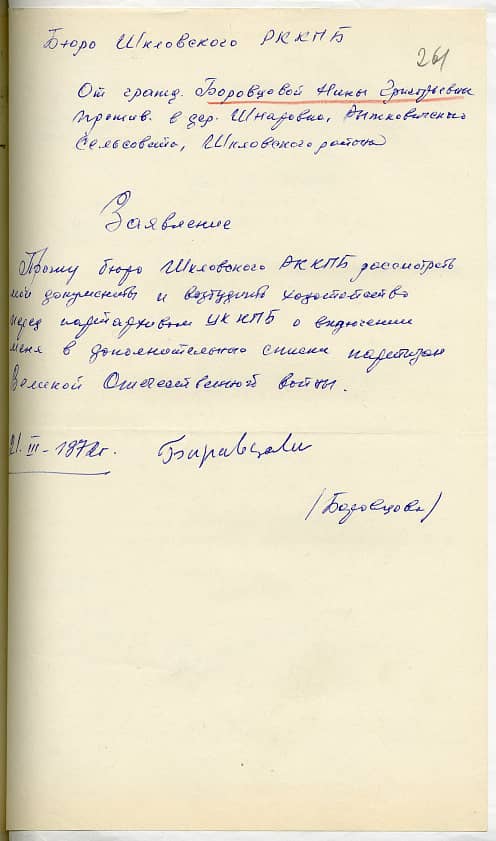 Бюро Шкловского РККПБ
261
От гражд. Боровцовой Нины Григорьевны
прожив. в дер. Шнаровка, Рыжковичского
сельсовета, Шкловского района
Заявление
Прошу бюро Шкловского РККПБ рассмотреть
мои документы и возбудить ходатайство
перед партархивом ЦК КПБ о включении
меня в дополнительные списки партизан
Великой Отечественной войны.
21.III-1972г. Боровцова
/Боровцова/